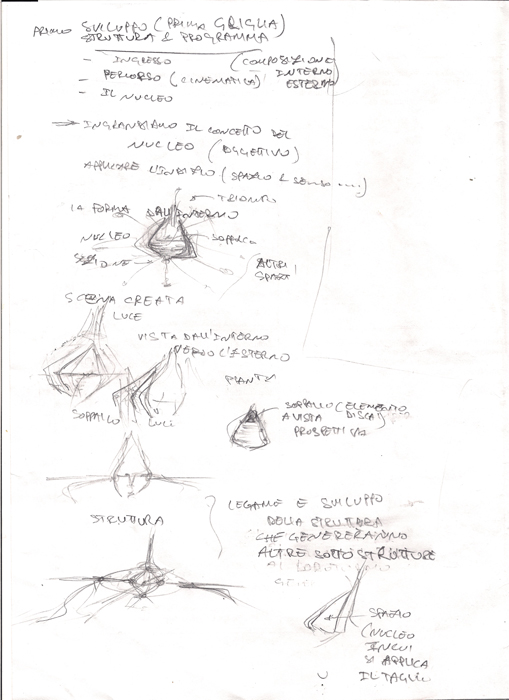 PRIMO SVILUPPO (PRIMA GRIGLIA)
STRUTTURA & PROGRAMMA
- INGRESSO (COMPOSIZIONE
- PERCORSO (CINEMATICA) INTERNO
ESTERNO
- IL NUCLEO
→ INGRANDIAMO IL CONCETTO DEL
NUCLEO (OGGETTIVO)
APPLICARE (SPAZIO & SENSO ....)
LA FORMA DALL'INTERNO
NUCLEO SOPPALCO
SEZIONE
ALTRI
SPAZI
SCENA CREATA
LUCE
VISTA DALL'INTERNO
VERSO L'ESTERNO
PIANTA
SOPPALCO LUCE
SOPPALCO (ELEMENTO
A VISTA
PROSPETTIVA
STRUTTURA
LEGAME E SVILUPPO
DELLA STRUTTURA
CHE GENERERANNO
ALTRE SOTTOSTRUTTURE
SPAZIO
(NUCLEO
IN CUI
SI APPLICA
IL TAGLIO